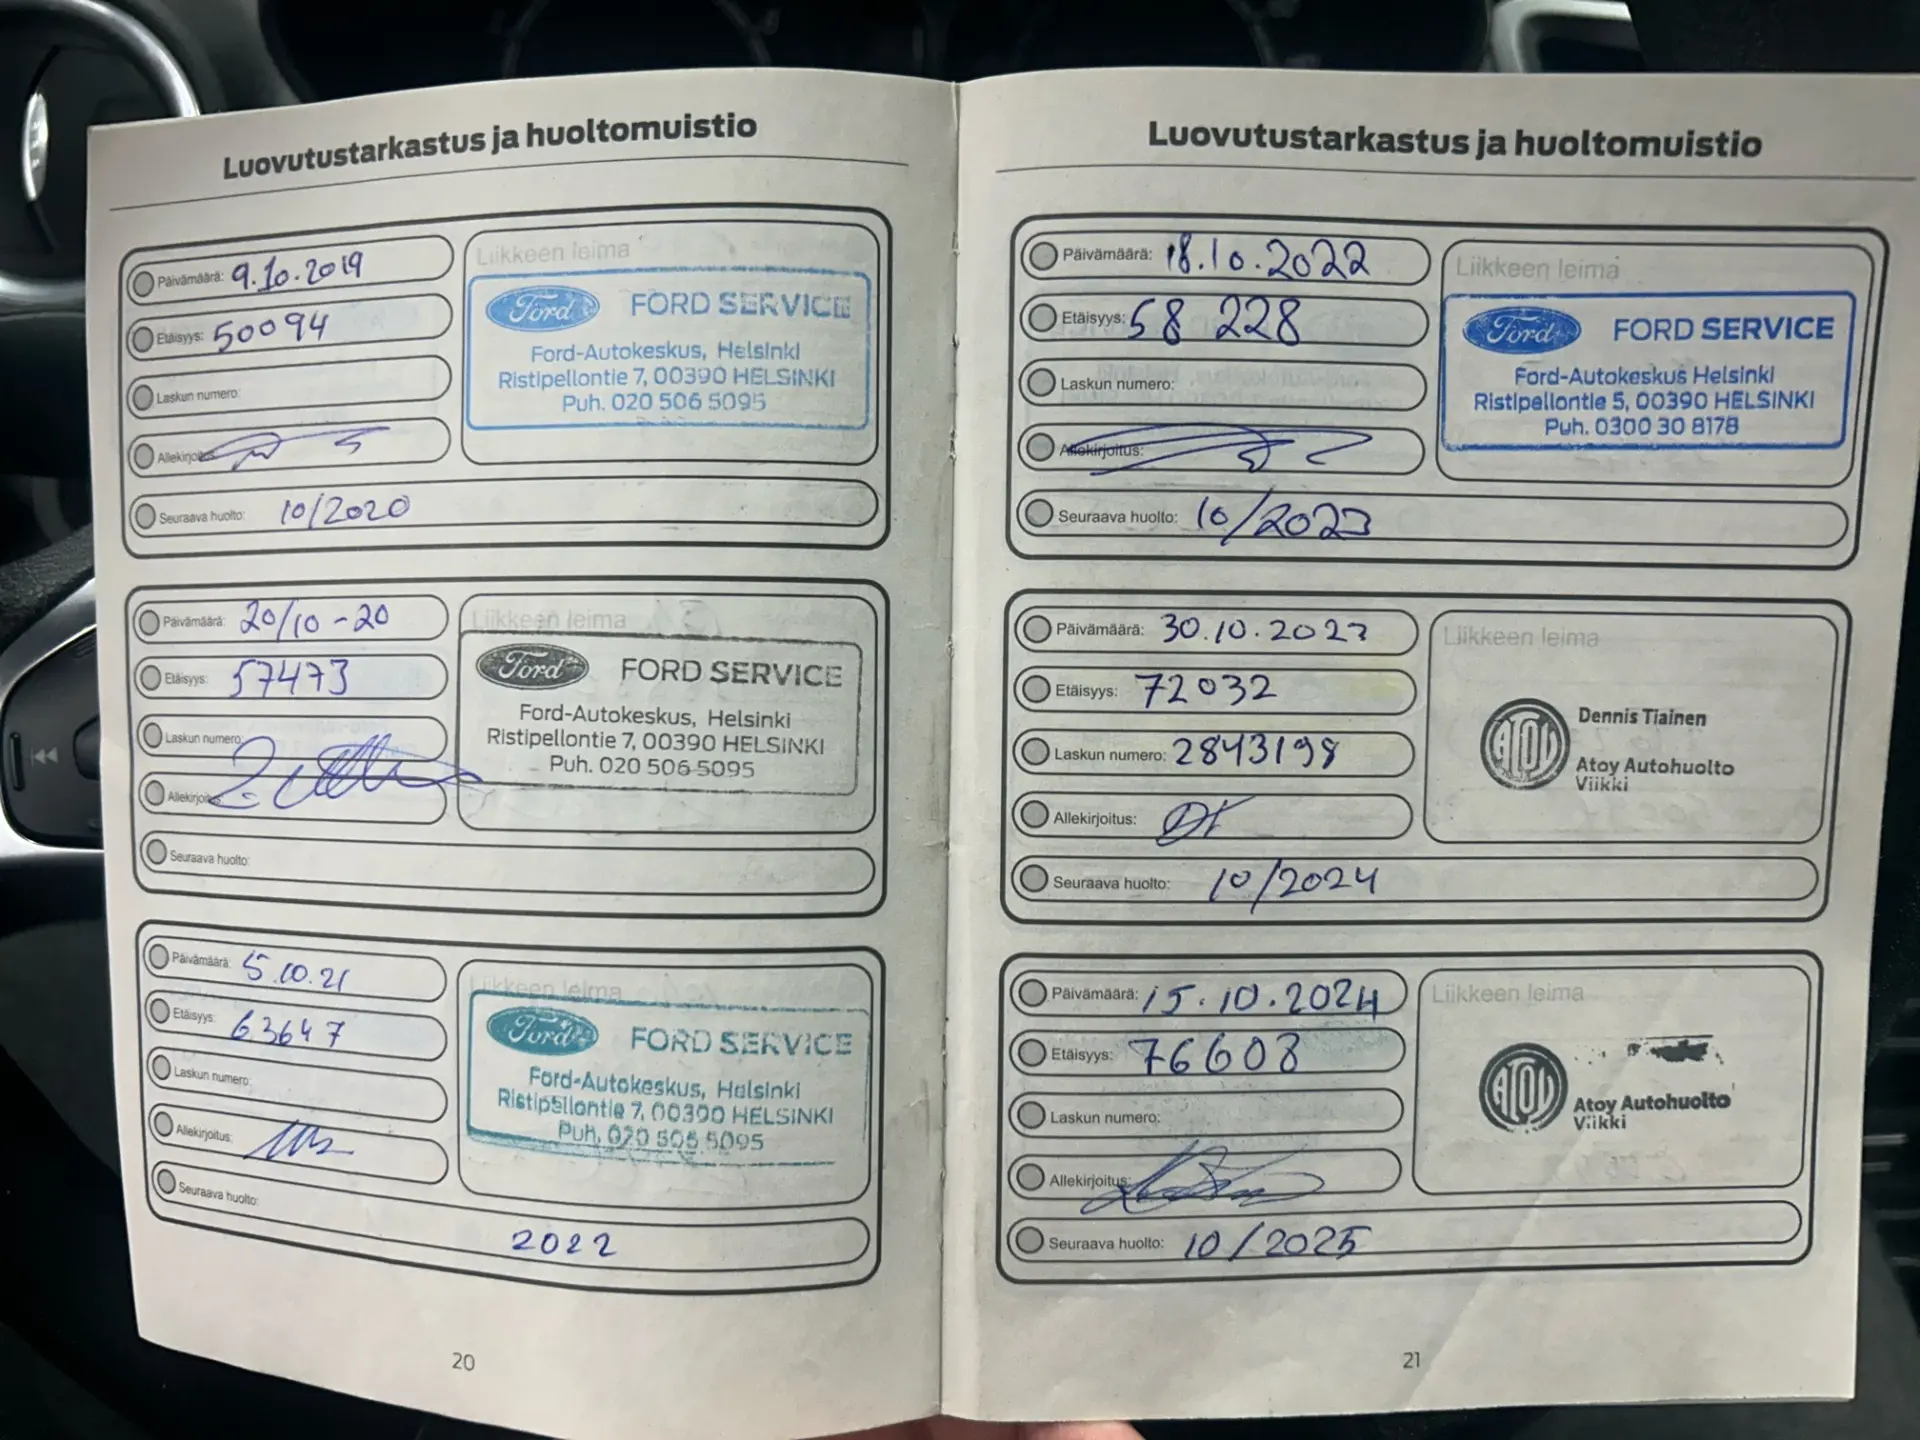 Luovutustarkastus ja huoltomuistio
Päivämäärä: 9.10.2019
Etäisyys: 50094
Laskun numero:
Allekirjoitus:
Seuraava huolto: 10/2020
Liikkeen leima
Ford FORD SERVICE
Ford-Autokeskus, Helsinki
Ristipellontie 7, 00390 HELSINKI
Puh. 020 506 5095
Päivämäärä: 20/10-20
Etäisyys: 57473
Laskun numero:
Allekirjoitus:
Seuraava huolto:
Liikkeen leima
Ford FORD SERVICE
Ford-Autokeskus, Helsinki
Ristipellontie 7, 00390 HELSINKI
Puh. 020 506 5095
Päivämäärä: 5.10.21
Etäisyys: 63647
Laskun numero:
Allekirjoitus:
Seuraava huolto: 2022
Liikkeen leima
Ford FORD SERVICE
Ford-Autokeskus, Helsinki
Ristipellontie 7, 00390 HELSINKI
Puh. 020 506 5095
20
Luovutustarkastus ja huoltomuistio
Päivämäärä: 18.10.2022
Etäisyys: 58 228
Laskun numero:
Allekirjoitus:
Seuraava huolto: 10/2023
Liikkeen leima
Ford FORD SERVICE
Ford-Autokeskus Helsinki
Ristipellontie 5, 00390 HELSINKI
Puh. 0300 30 8178
Päivämäärä: 30.10.2023
Etäisyys: 72032
Laskun numero: 2843198
Allekirjoitus:
Seuraava huolto: 10/2024
Liikkeen leima
ATOY Dennis Tiainen
Atoy Autohuolto
Viikki
Päivämäärä: 15.10.2024
Etäisyys: 76608
Laskun numero:
Allekirjoitus:
Seuraava huolto: 10/2025
Liikkeen leima
ATOY Atoy Autohuolto
Viikki
21